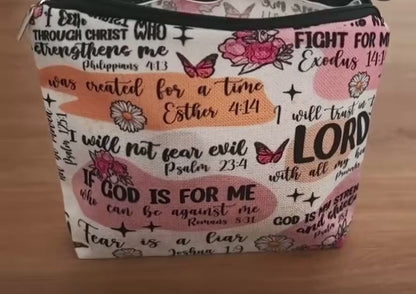 THROUGH CHRIST WHO
strengthens me
Philippians 4:13
FIGHT FOR ME
Exodus 14:1
was created for a time
Esther 4:14
I will trust in t
LORD
with all my
I will not fear evil
Psalm 23:4
IF GOD IS FOR ME
who can be against me
Romans 8:31
GOD IS MY STREN
Fear is a liar
Joshua 1:9